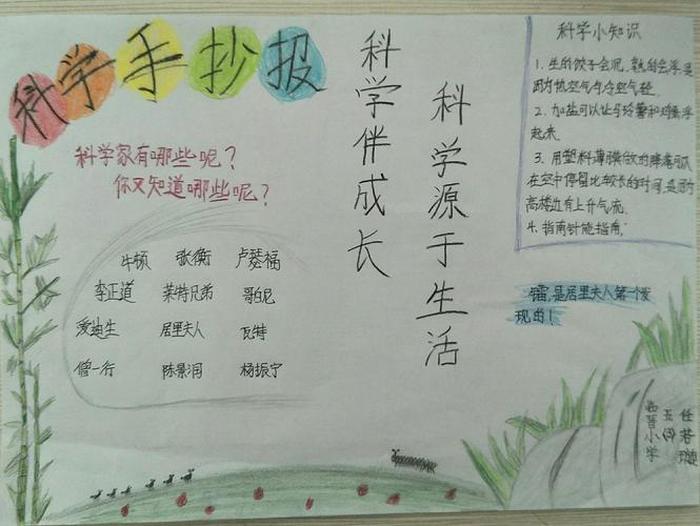 科学手抄报
科学家有哪些呢？
你又知道哪些呢？
牛顿 张衡 卢瑟福
李正道 莱特兄弟 哥白尼
爱迪生 居里夫人 瓦特
僧一行 陈景润 杨振宁
科学伴成长
科学源于生活
科学小知识
1. 生的饺子会沉，熟的会浮，是
因为热空气与冷空气轻.
2. 加盐可以让马铃薯和鸡蛋浮
起来.
3. 用塑料薄膜做的降落可以
在空中停留比较长的时间，是因为
高楼边有上升气流.
4. 指南针能指南.
镭，是居里夫人第一个发
现的！
小学
五
任若璇